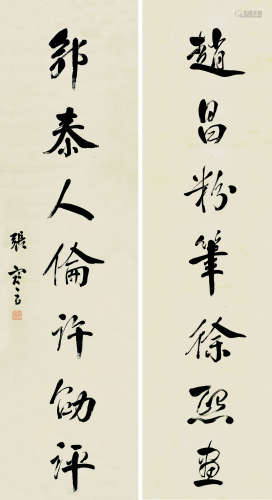 趙昌粉筆徐熙畫
郭泰人倫許劭評
張